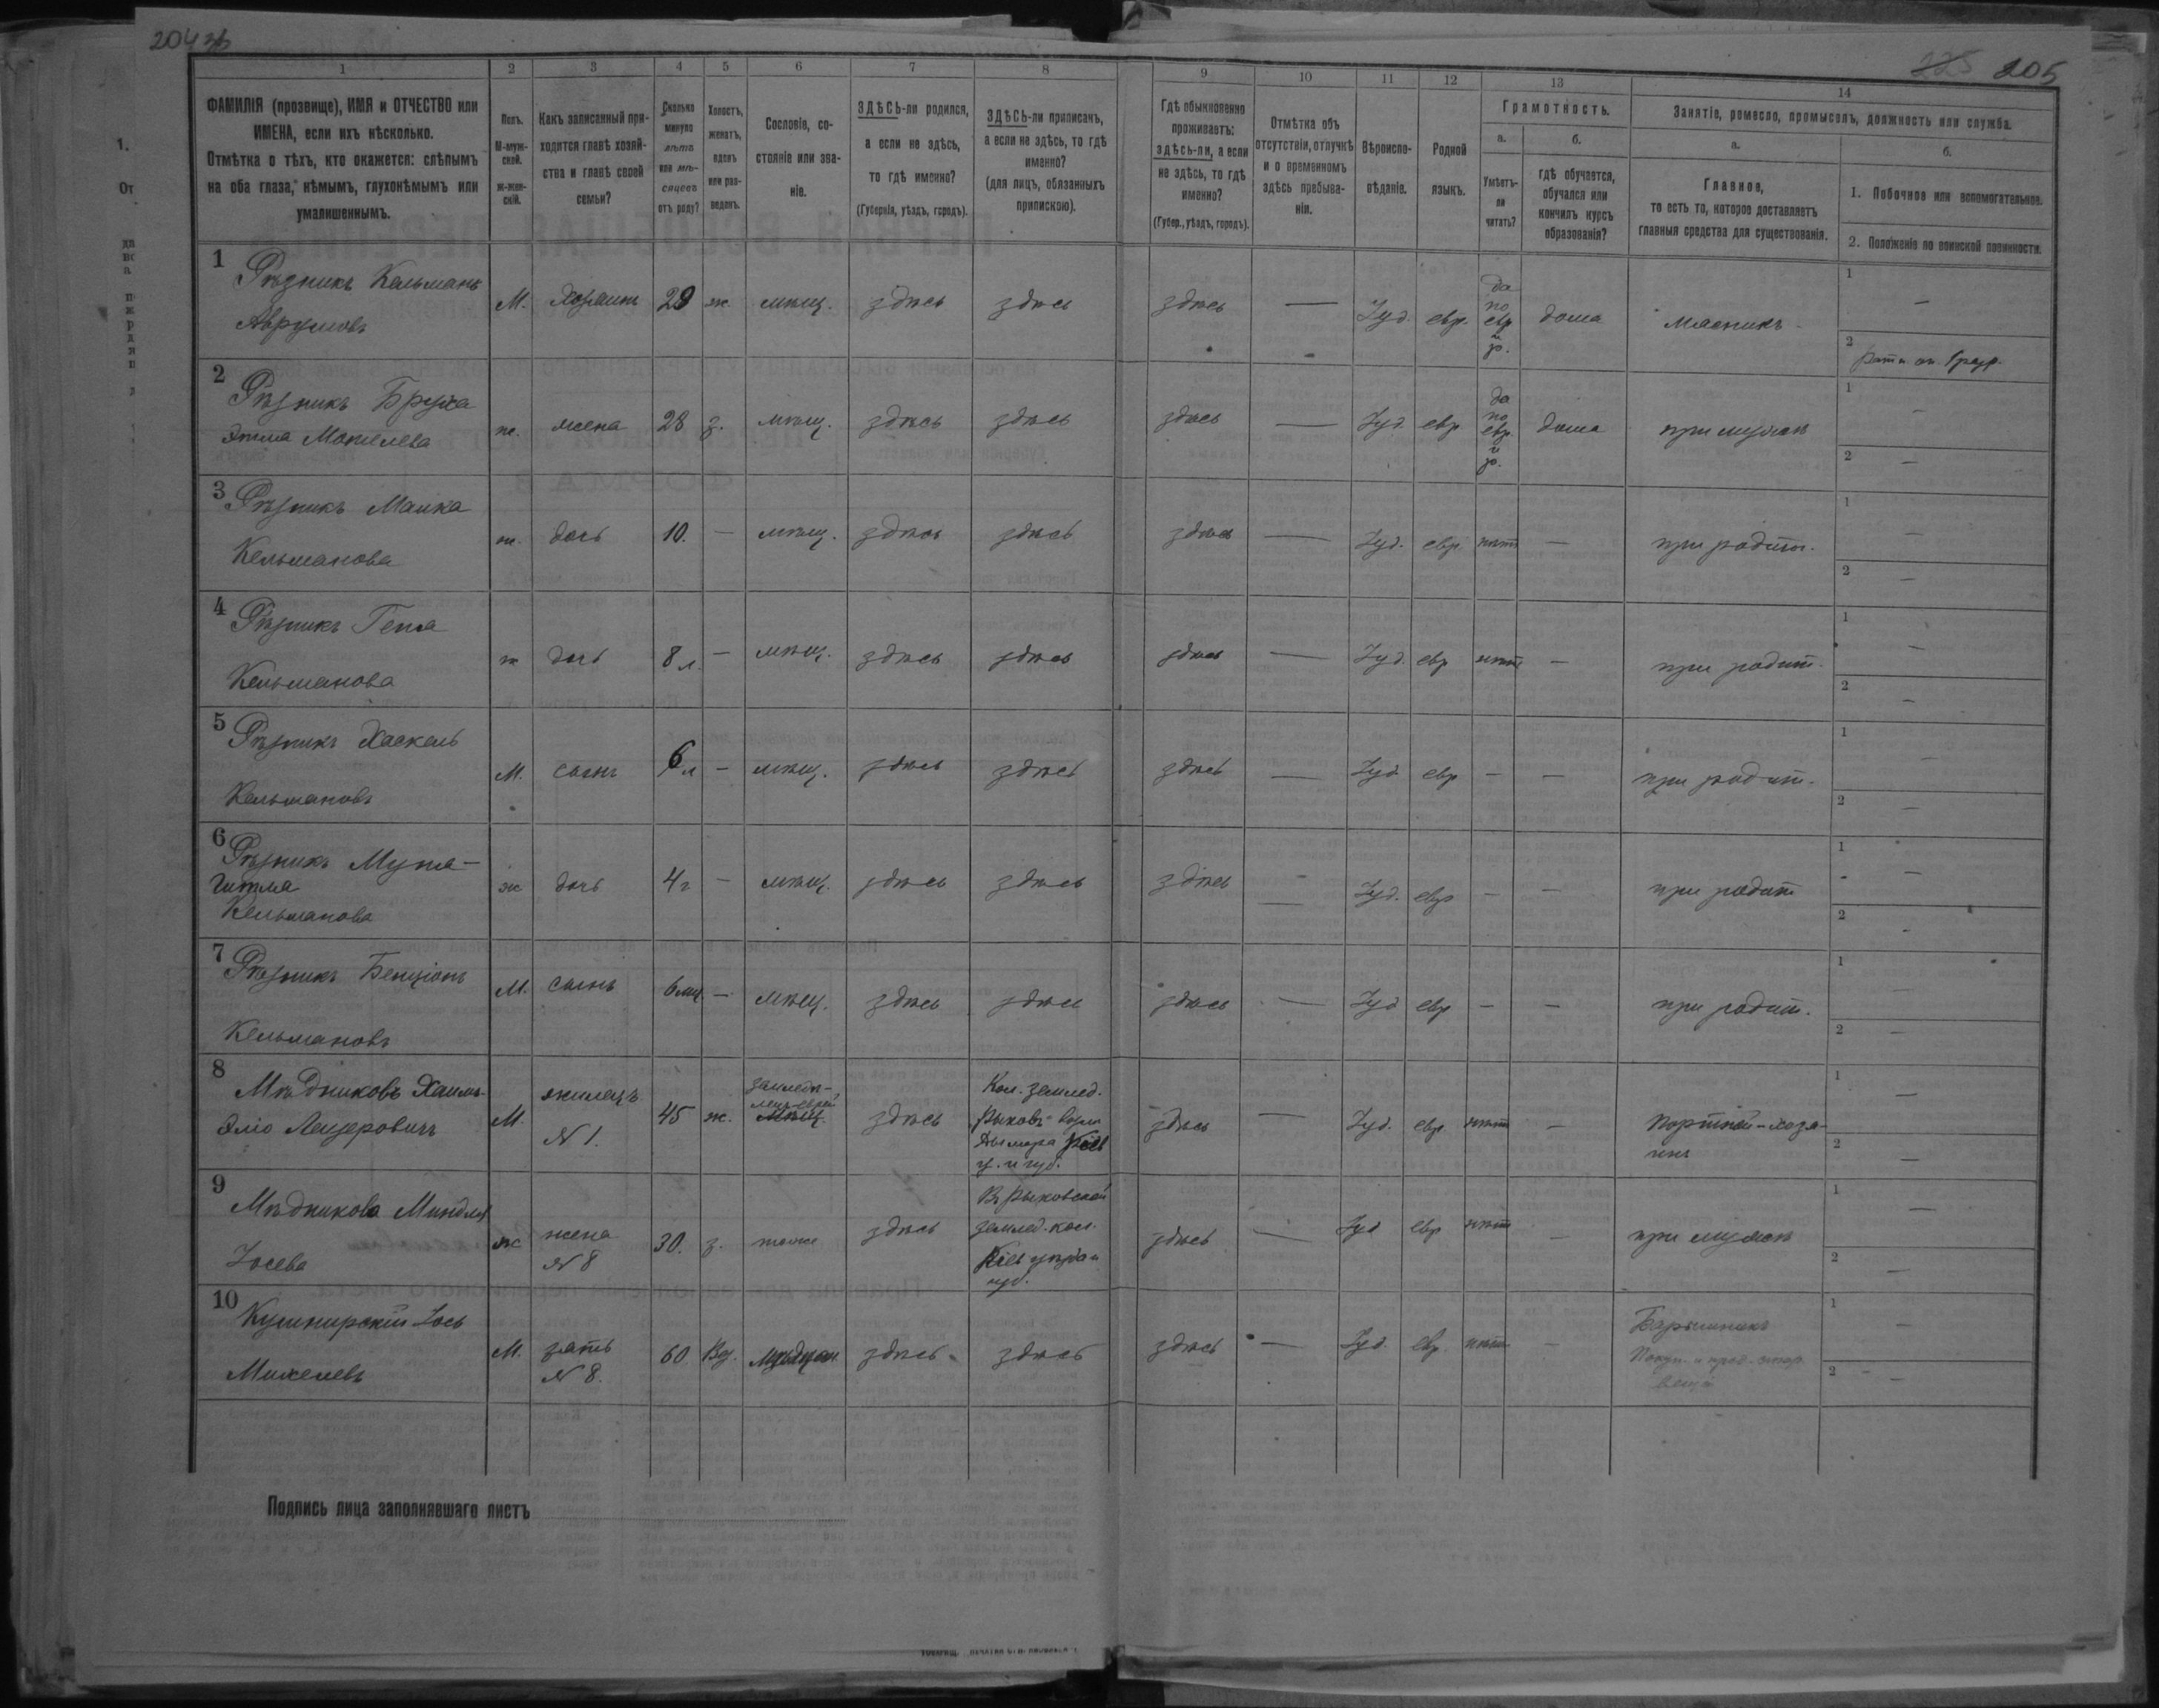 204 об
225 205
1 2 3 4 5 6 7 8 9 10 11 12 13 14
ФАМИЛІЯ (прозвище), ИМЯ и ОТЧЕСТВО или
ИМЕНА, если ихъ нѣсколько.
Отмѣтка о тѣхъ, кто окажется: слѣпымъ
на оба глаза, нѣмымъ, глухонѣмымъ или
умалишеннымъ.
Полъ.
М-муж-
ской.
ж-жен-
скій.
Какъ записанный при-
ходится главѣ хозяй-
ства и главѣ своей
семьи?
Сколько
минуло
лѣтъ
или мѣ-
сяцевъ
отъ роду?
Холостъ,
женатъ,
вдовъ
или раз-
веденъ.
Сословіе, со-
стояніе или зва-
ніе.
ЗДѢСЬ-ли родился,
а если не здѣсь,
то гдѣ именно?
(Губернія, уѣздъ, городъ).
ЗДѢСЬ-ли приписанъ,
а если не здѣсь, то гдѣ
именно?
(для лицъ, обязанныхъ
припискою).
Гдѣ обыкновенно
проживаетъ:
здѣсь-ли, а если
не здѣсь, то гдѣ
именно?
(Губер., уѣздъ, городъ).
Отмѣтка объ
отсутствіи, отлучкѣ
и о временномъ
здѣсь пребыва-
ніи.
Вѣроиспо-
вѣданіе.
Родной
языкъ.
Грамотность.
а.
Умѣетъ-
ли
читать?
б.
гдѣ обучается,
обучался или
кончилъ курсъ
образованія?
Занятіе, ремесло, промыселъ, должность или служба.
а.
Главное,
то есть то, которое доставляетъ
главныя средства для существованія.
б.
1. Побочное или вспомогательное.
2. Положеніе по воинской повинности.
1 Рѣзникъ Кельманъ
Аврумовъ
М. Хозяинъ 29 ж. мѣщ. здѣсь здѣсь здѣсь — Іуд. евр. да
по
евр
и
р. дома мясникъ 1 —
2
2 Рѣзникъ Бруха
Этля Мошелева
ж. жена 28 з. мѣщ. здѣсь здѣсь здѣсь — Іуд евр да
по
евр.
и
р. дома при мужѣ 1 —
2 —
3 Рѣзникъ Малка
Кельманова
ж. дочь 10. — мѣщ. здѣсь здѣсь здѣсь — Іуд. евр нѣтъ — при родит. 1 —
2 —
4 Рѣзникъ Геня
Кельманова
ж дочь 8 л. — мѣщ. здѣсь здѣсь здѣсь — Іуд. евр нѣтъ — при родит. 1 —
2 —
5 Рѣзникъ Хаскель
Кельмановъ
М. сынъ 6 л — мѣщ. здѣсь здѣсь здѣсь — Іуд евр — — при родит. 1 —
2 —
6 Рѣзникъ Муня-
Гитля
Кельманова
ж дочь 4 г — мѣщ. здѣсь здѣсь здѣсь — Іуд. евр — — при родит 1 —
2 —
7 Рѣзникъ Бенціонъ
Кельмановъ
М. сынъ 6 мѣс. — мѣщ. здѣсь здѣсь здѣсь — Іуд евр — — при родит. 1 —
2 —
8 Мѣдниковъ Хаимъ-
Эліо Лейзеровичъ
М. жилецъ
№ 1. 45 ж. земледѣ-
лецъ-еврей
мѣщ. здѣсь Кол. землед.
Рыковъ
Дымера Кіев
у. и губ. здѣсь — Іуд. евр нѣтъ — портной-хозя-
инъ 1 —
2 —
9 Мѣдникова Миндля
Іосева
ж жена
№ 8 30. з. тоже здѣсь Въ Рыковской
землед. кол.
Кіев уѣзда и
губ. здѣсь — Іуд евр нѣтъ — при мужѣ 1 —
2 —
10 Кушнирскій Іось
М. зять
№ 8. 60 Вд. здѣсь здѣсь здѣсь — Іуд. евр. нѣтъ — Барышникъ
вещи 1 —
2 —
Подпись лица заполнявшаго листъ